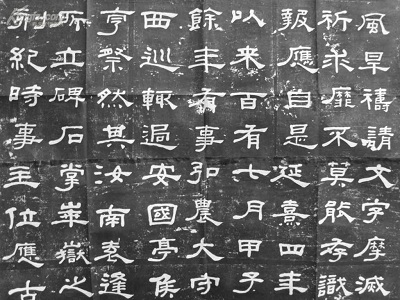 風旱禱請文字摩滅
祈求靡不莫能存識
報應自是延熹四年
以來百有七月甲子
餘年有事弘農大守
西巡輒過安國亭侯
亨祭然其汝南袁逢
所立碑石掌崋嶽之
刻紀時事主位應古